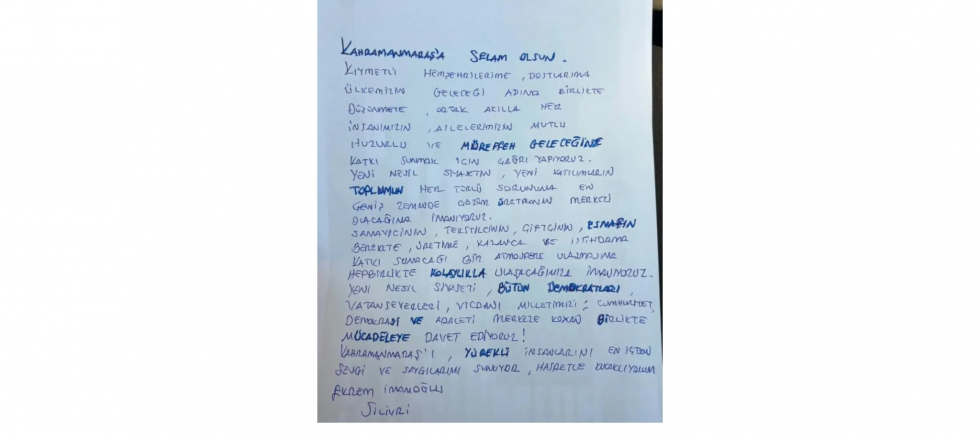 KAHRAMANMARAŞ'A SELAM OLSUN.
KIYMETLİ HEMŞEHRİLERİME, DOSTLARIMA
ÜLKEMİZİN GELECEĞİ ADINA BİRLİKTE
DÜŞÜNMEYE, ORTAK AKILLA HER
İNSANIMIZIN, AİLELERİMİZİN MUTLU
HUZURLU VE MÜREFFEH GELECEĞİNE
KATKI SUNMAK İÇİN ÇAĞRI YAPIYORUZ.
YENİ NESİL SİYASETİN, YENİ KATILIMLARIN
TOPLUMUN HER TÜRLÜ SORUNUNA EN
GENİŞ ZEMİNDE ÇÖZÜM ÜRETMENİN MERKEZİ
OLACAĞINA İNANIYORUZ.
SANAYİCİNİN, TEKSTİLCİNİN, ÇİFTÇİNİN, ESNAFIN
BEREKETE, ÜRETİME, KAZANCA VE İSTİHDAMA
KATKI SUNACAĞI BİR ATMOSFERE ULAŞMAMIZA
HEPBİRLİKTE KOLAYLIKLA ULAŞACAĞIMIZA İNANIYORUZ.
YENİ NESİL SİYASETİ, BÜTÜN DEMOKRATLARI,
VATANSEVERLERİ, VİCDANI MİLLETİMİZİ; CUMHURİYET,
DEMOKRASİ VE ADALETİ MERKEZE KOYAN BİRLİKTE
MÜCADELEYE DAVET EDİYORUZ!
KAHRAMANMARAŞ'I, YÜREKLİ İNSANLARINI EN İÇTEN
SEVGİ VE SAYGILARIMI SUNUYOR, HASRETLE KUCAKLIYORUM
EKREM İMAMOĞLU
SİLİVRİ